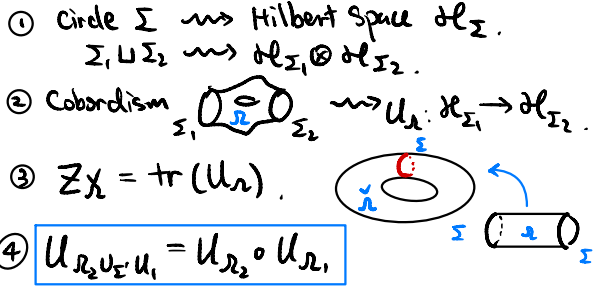 ① Circle Σ ⇝ Hilbert Space ℋ_Σ.
Σ₁ ⊔ Σ₂ ⇝ ℋ_Σ₁ ⊗ ℋ_Σ₂.
② Cobordism Σ₁ Ω Σ₂ ⇝ U_Ω : ℋ_Σ₁ → ℋ_Σ₂.
③ Z_Ω̌ = tr(U_Ω).
Σ
Ω̌
Σ Ω Σ
④ U_Ω₂∪_Σ'U₁ = U_Ω₂ ∘ U_Ω₁